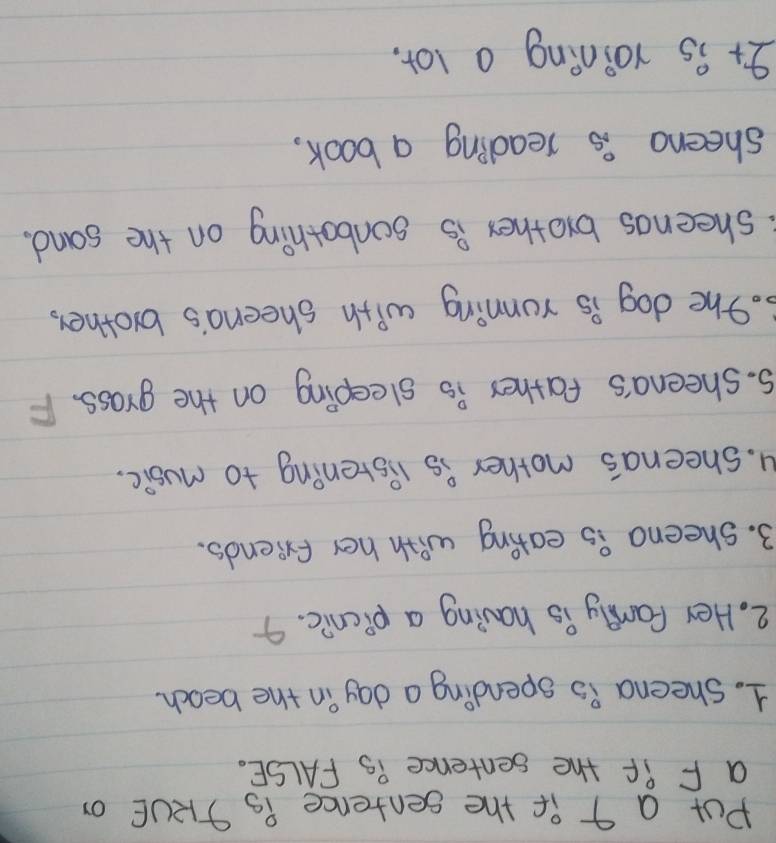 Put a T if the sentence is TRUE or
a F if the sentence is FALSE.
1. Sheena is spending a day in the beach.
2. Her family is having a picnic. T
3. Sheena is eating with her friends.
4. Sheena's mother is listening to music.
5. Sheena's father is sleeping on the grass. F
6. The dog is running with Sheena's brother.
Sheenas brother is sunbathing on the sand.
Sheena is reading a book.
It is raining a lot.